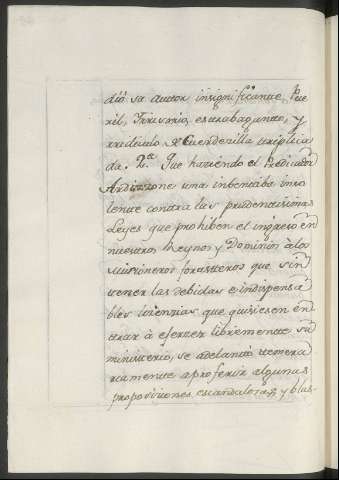 dió su autor insignificante, Pue
ril, Irrisorio, estrabagante, y
rradiculo de Cuerdecilla triplica
da. N.a Que haziendo el Predicador
Ardizzone una inbenctiba inso
lente contra las prudentisimas
Leyes que prohiben el ingreso en
nuestros Reynos y Dominios à los
Missioneros forasteros que sin
tener las debidas e indispensa
bles licenzias que quisiesen en
trar à ejerzer libremente su
ministerio, se adelantó temera
riamente a proferir algunas
proposiziones escandalozas, y blas-